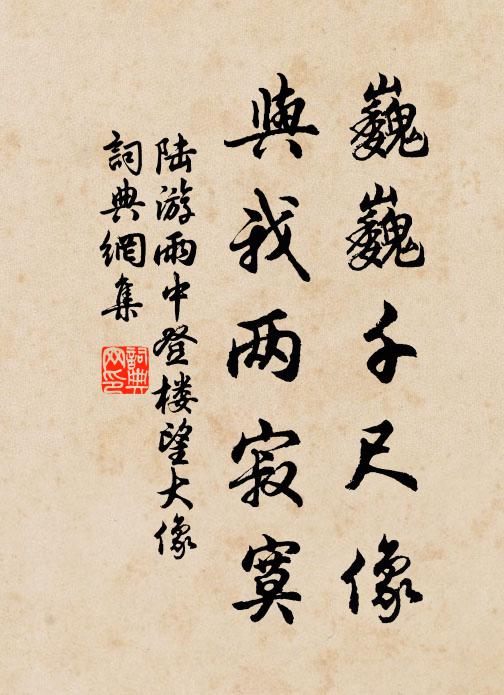 巍巍千尺像
與我兩寂寞
陆游雨中登楼望大像
詞典網集
詞典网印